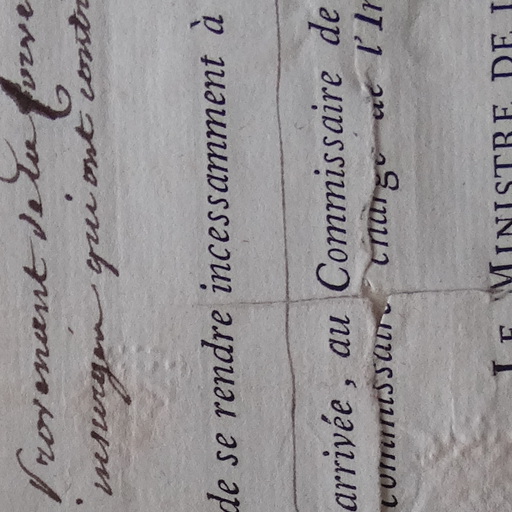 Provenant de la
insurgés qui ont contr
de se rendre incessamment à
arrivée, au Commissaire de
commissaire chargé de l'In
LE MINISTRE DE L